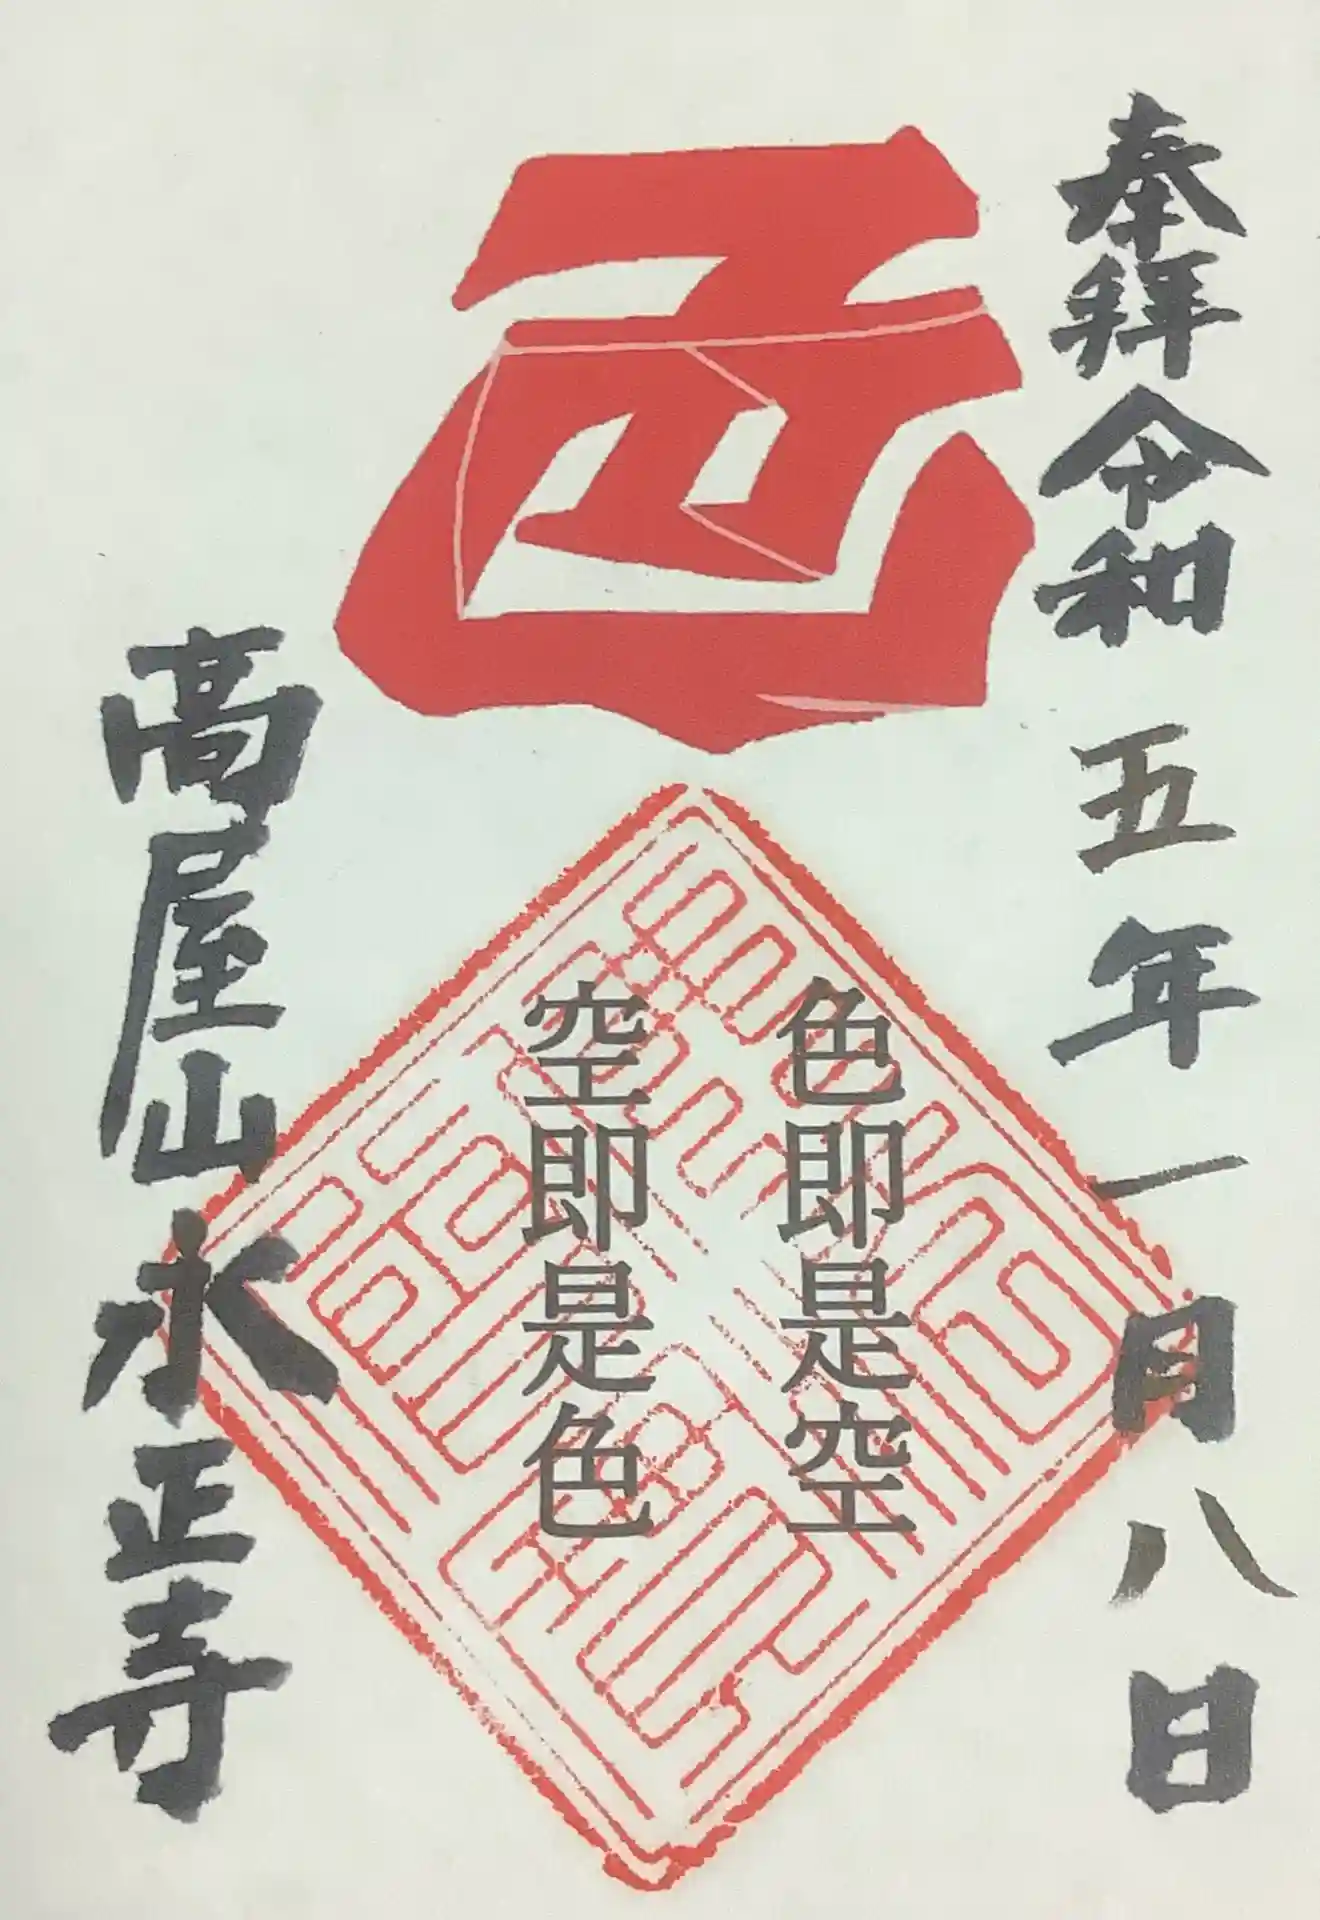 奉拝 令和五年一月八日
色即是空
空即是色
高屋山 永正寺